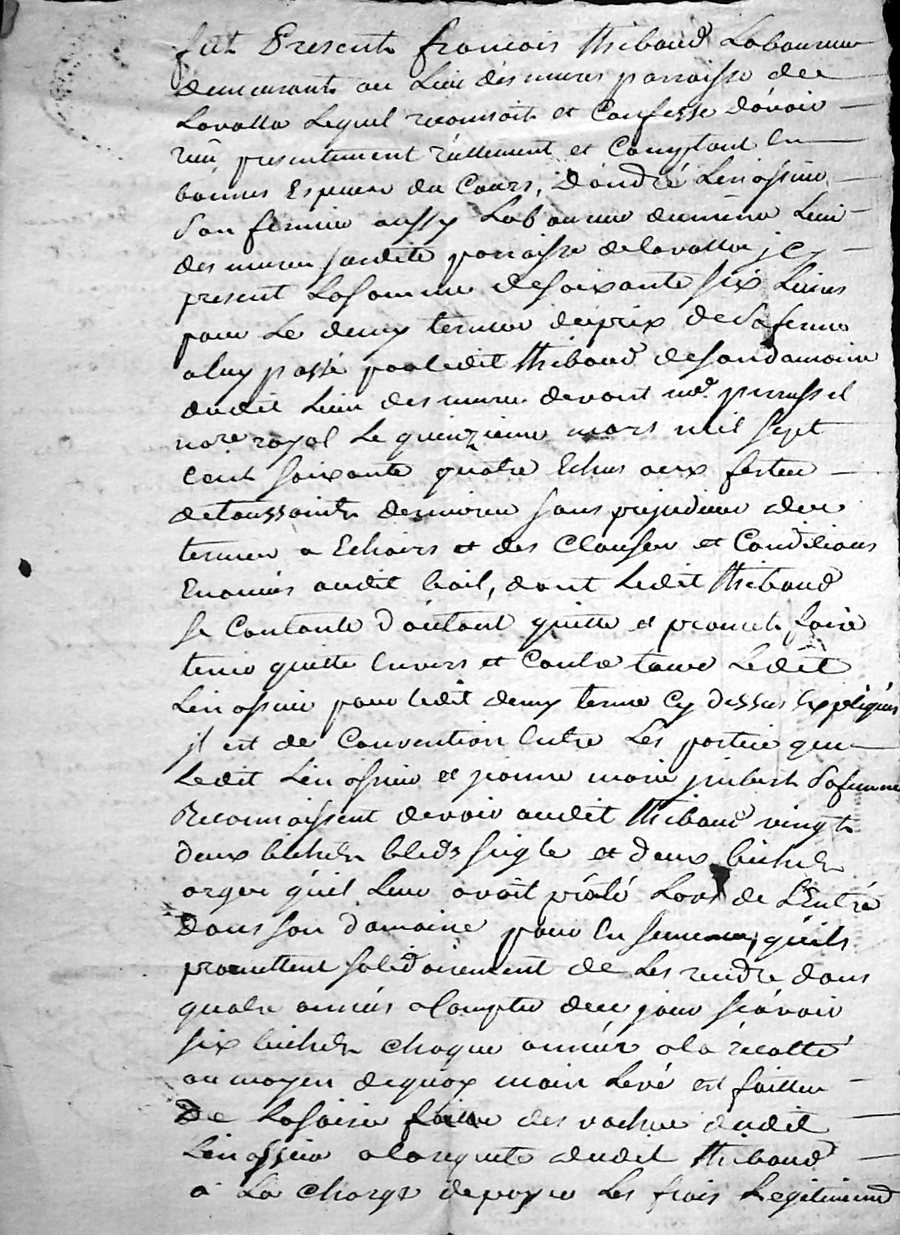 fut Present francois Thibaud Laboureur
demeurant au Lieu des mures parroisse de
Lavalla Lequel reconnoit et Confesse d'avoir
reçû presentement réellement et Comptant En
bonnes Especes du Cours, D'andré Linossier
Son fermier aussy Laboureur dumême Lieu
des mures susdite parroisse delavalla jcy
present Lasomme desoixante six Livres
pour Le demy terme duprix de Saferme
aluy passé parledit Thibaud desondomaine
dudit Lieu des mures devant me.
nore. royal Le quinzieme mars mil sept
Cent soixante quatre Echus aux festes
detoussaints dernieres sans prejudice des
termes a Echoirs et des Clauses et Conditions
Enoncés audit bail, dont Ledit Thibaud
se Contante d'autant quitte et promet faire
tenir quitte Envers et Contre tous Ledit
Linossier pour ledit demy terme Cy dessus Expliqués
jl est de Convention Entre Les parties que
Ledit Linossier et jeanne marie Safemme
Reconnaissent devoir audit Thibaud vingt
deux bichets bleds seigle et deux bichets
orge qu'il Leur avoit prêté Lors de L'Entré
dans son domaine pour En semence, qu'ils
promettent solidairement de Les rendre dans
quatre années aCompter dece jour sçavoir
six bichets chaque année ala récolte
au moyen dequoy main Levé est faitte
De Lasaisie faitte des vaches dudit
Linossier alarequete dudit Thibaud
a La charge depayer Les frais Legitimement